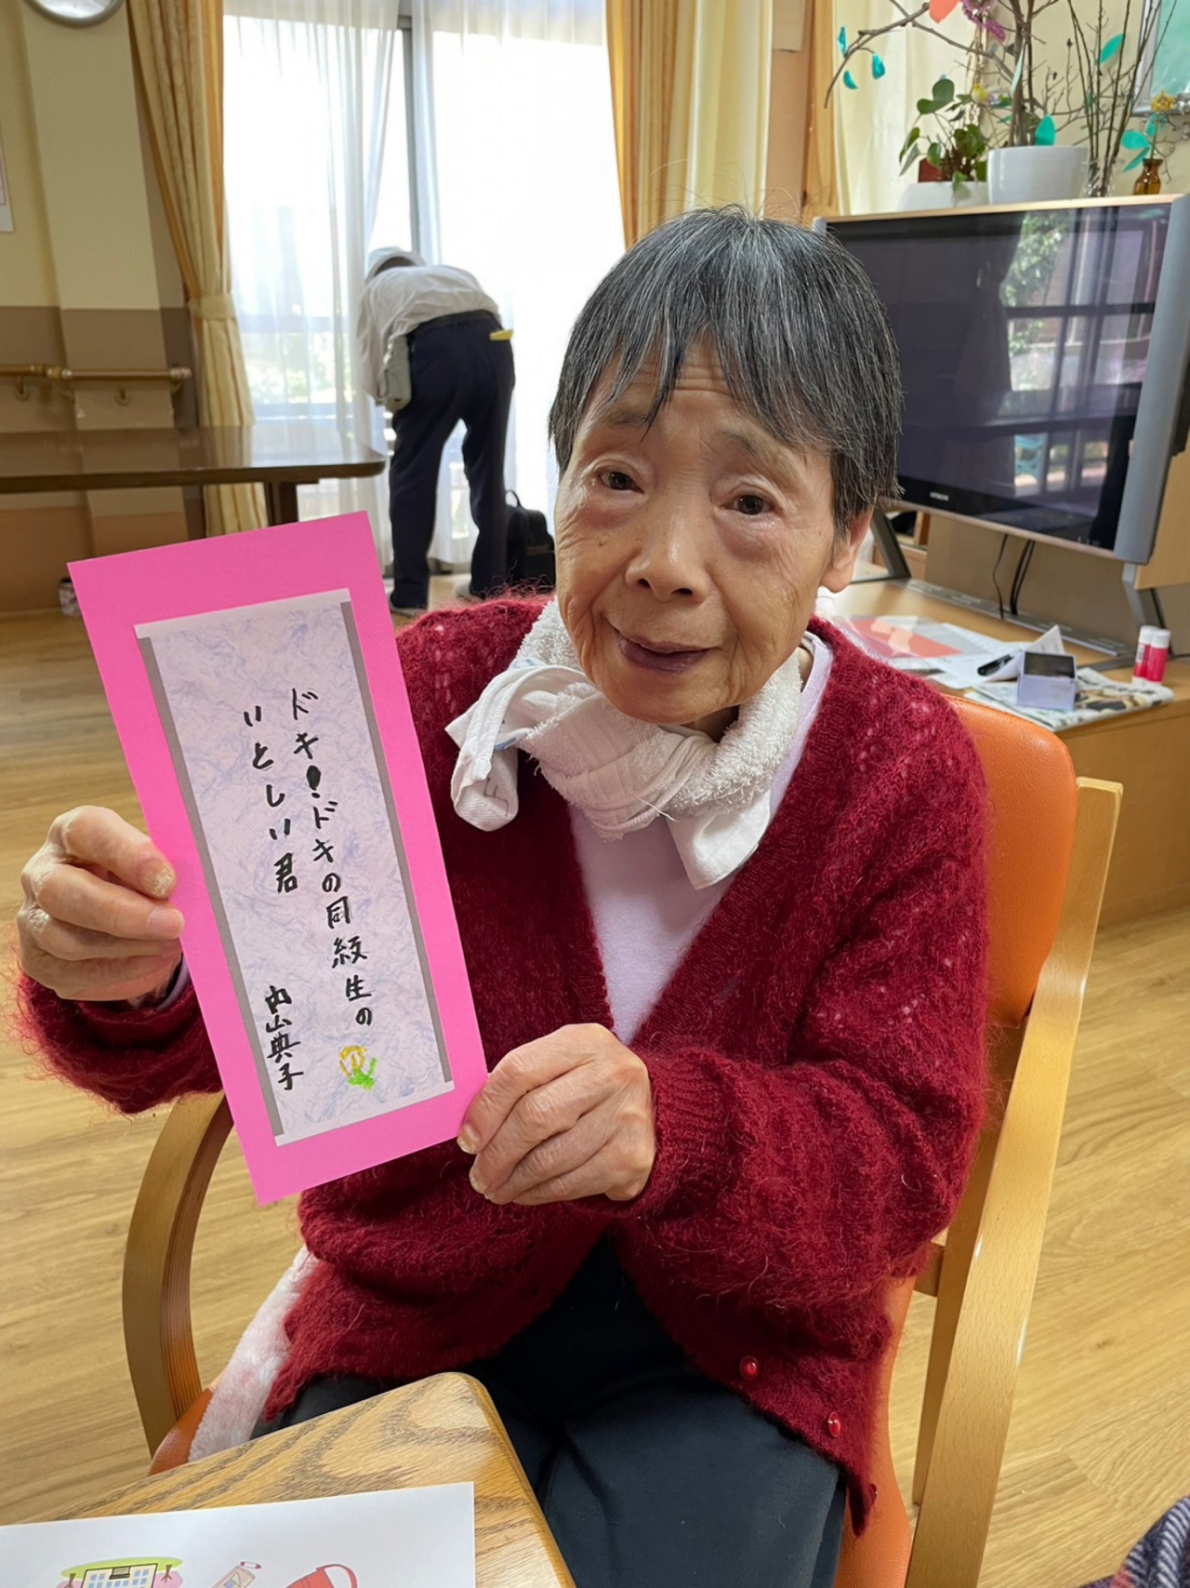 ドキ！ドキの同級生の
いとしい君
内山典子
HITACHI